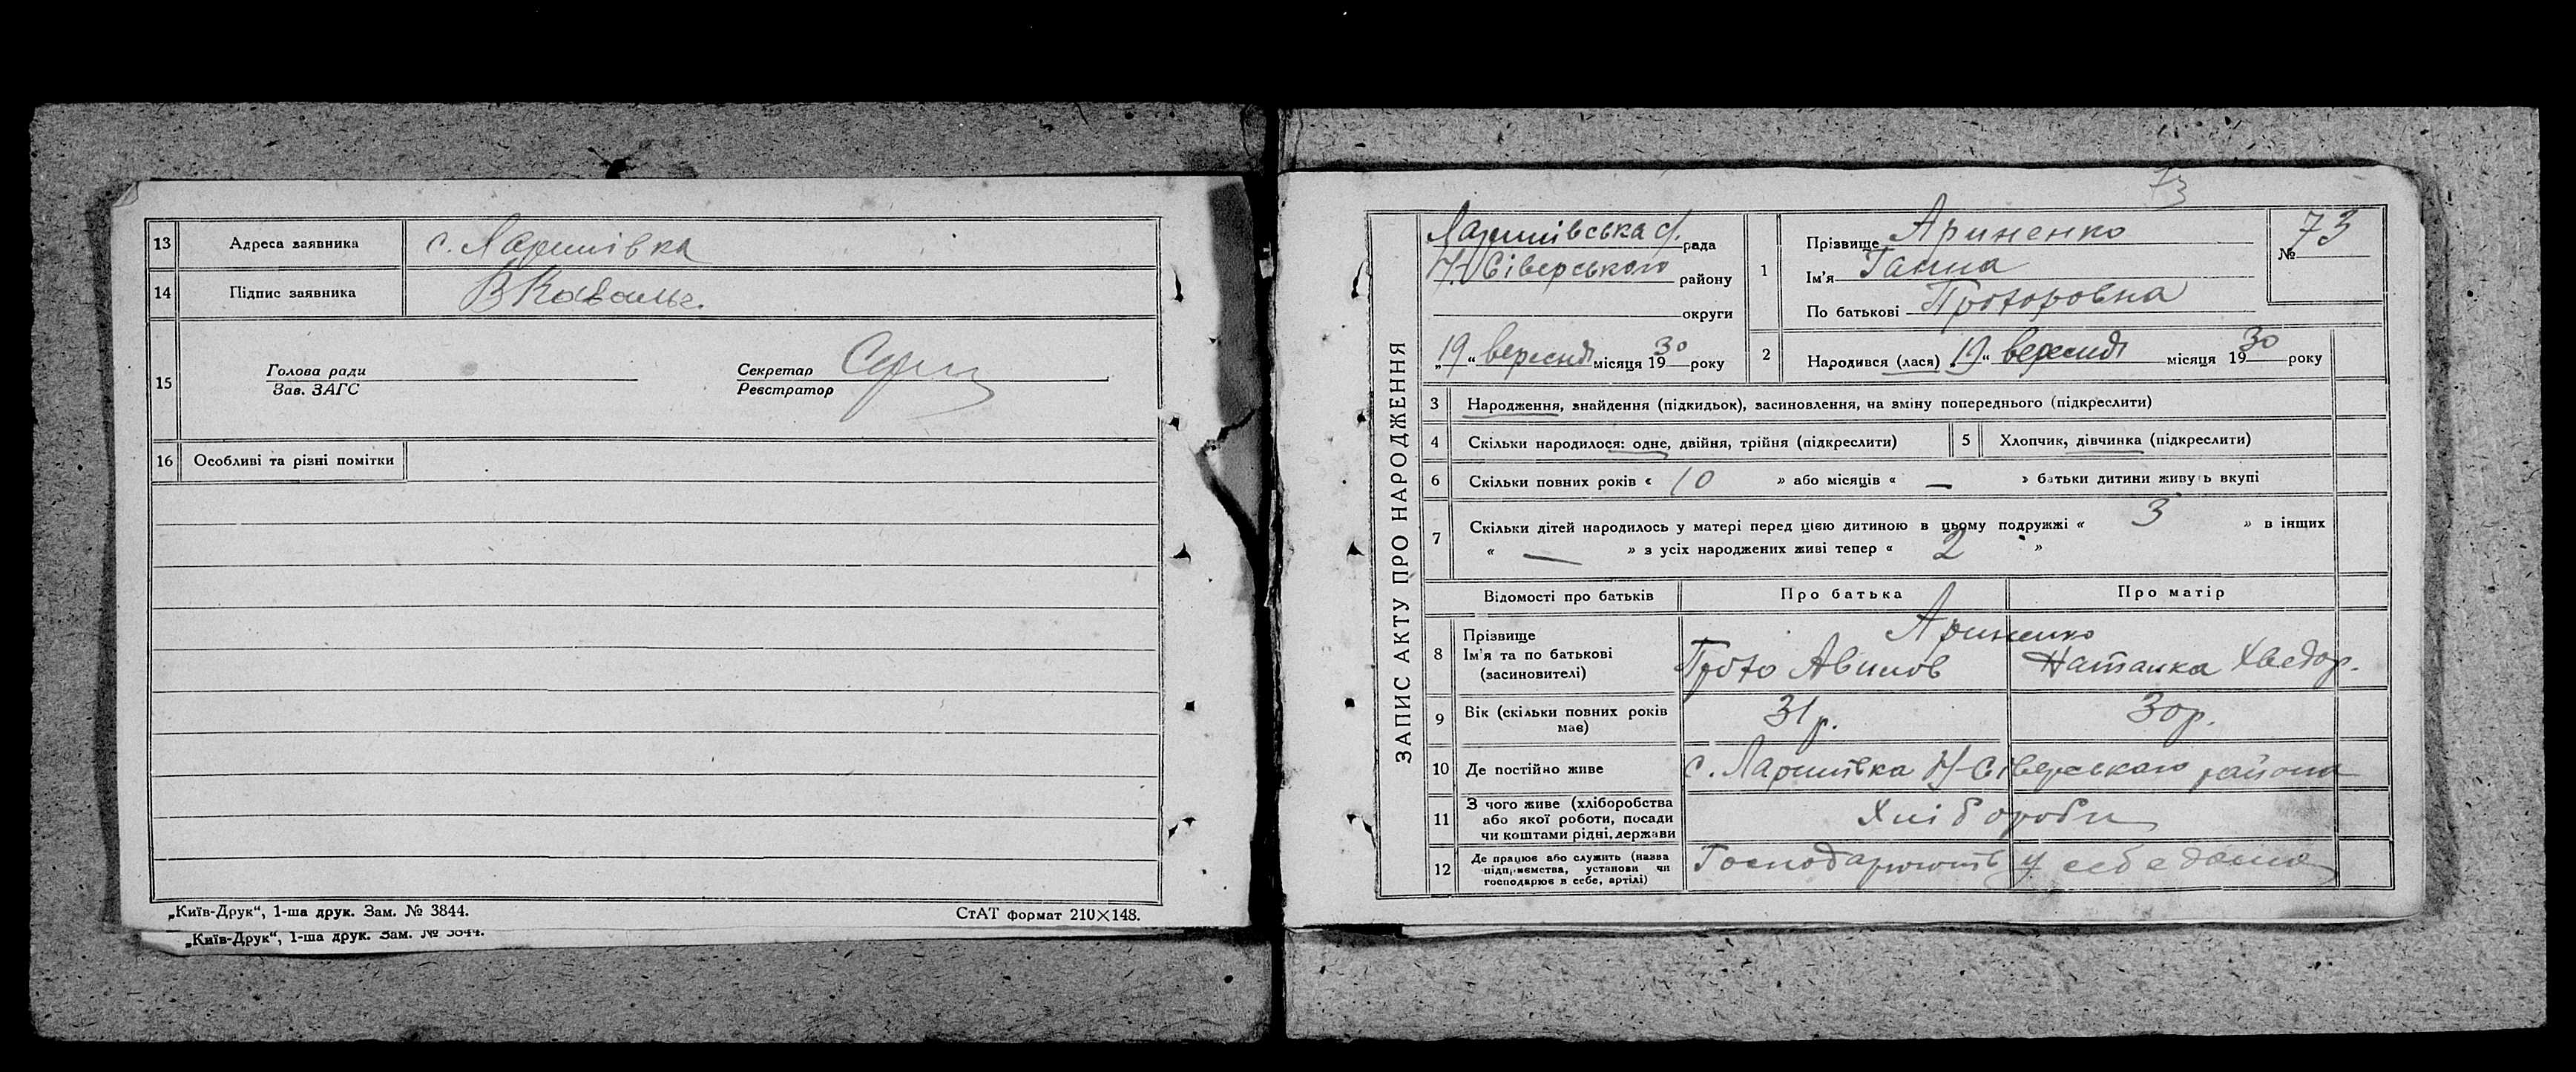 13 Адреса заявника с. Ларинівка
14 Підпис заявника
15 Голова ради Секретар
Зав. ЗАГС Реєстратор
16 Особливі та різні помітки
„Київ-Друк“, 1-ша друк. Зам. № 3844.
СтАТ формат 210×148.
„Київ-Друк“, 1-ша друк. Зам. № 3844.
73
ЗАПИС АКТУ ПРО НАРОДЖЕННЯ
Ларинівська с. рада
Н-Сіверського району
округи
„19“ вересня місяця 1930 року
1 Прізвище Ариненко
Ім'я Ганна
По батькові Прохоровна
№ 73
2 Народився (лася) „19“ вересня місяця 1930 року
3 Народження, знайдення (підкидьок), засиновлення, на зміну попереднього (підкреслити)
4 Скільки народилося: одне, двійня, трійня (підкреслити)
5 Хлопчик, дівчинка (підкреслити)
6 Скільки повних років « 10 » або місяців « — » батьки дитини живуть вкупі
7 Скільки дітей народилось у матері перед цією дитиною в цьому подружжі « 3 » в інших
« — » з усіх народжених живі тепер « 2 »
Відомості про батьків Про батька Про матір
8 Прізвище Ариненко
Ім'я та по батькові Прохо Авинов Наталка Хведор.
(засиновителі)
9 Вік (скільки повних років має) 31 р. 30 р.
10 Де постійно живе с. Ларинівка Н-Сіверського района
11 З чого живе (хліборобства
або якої роботи, посади
чи коштами рідні, держави Хлібороби
12 Де працює або служить (назва
підприємства, установи чи
господарює в себе, артілі) Господарюють у себе дома